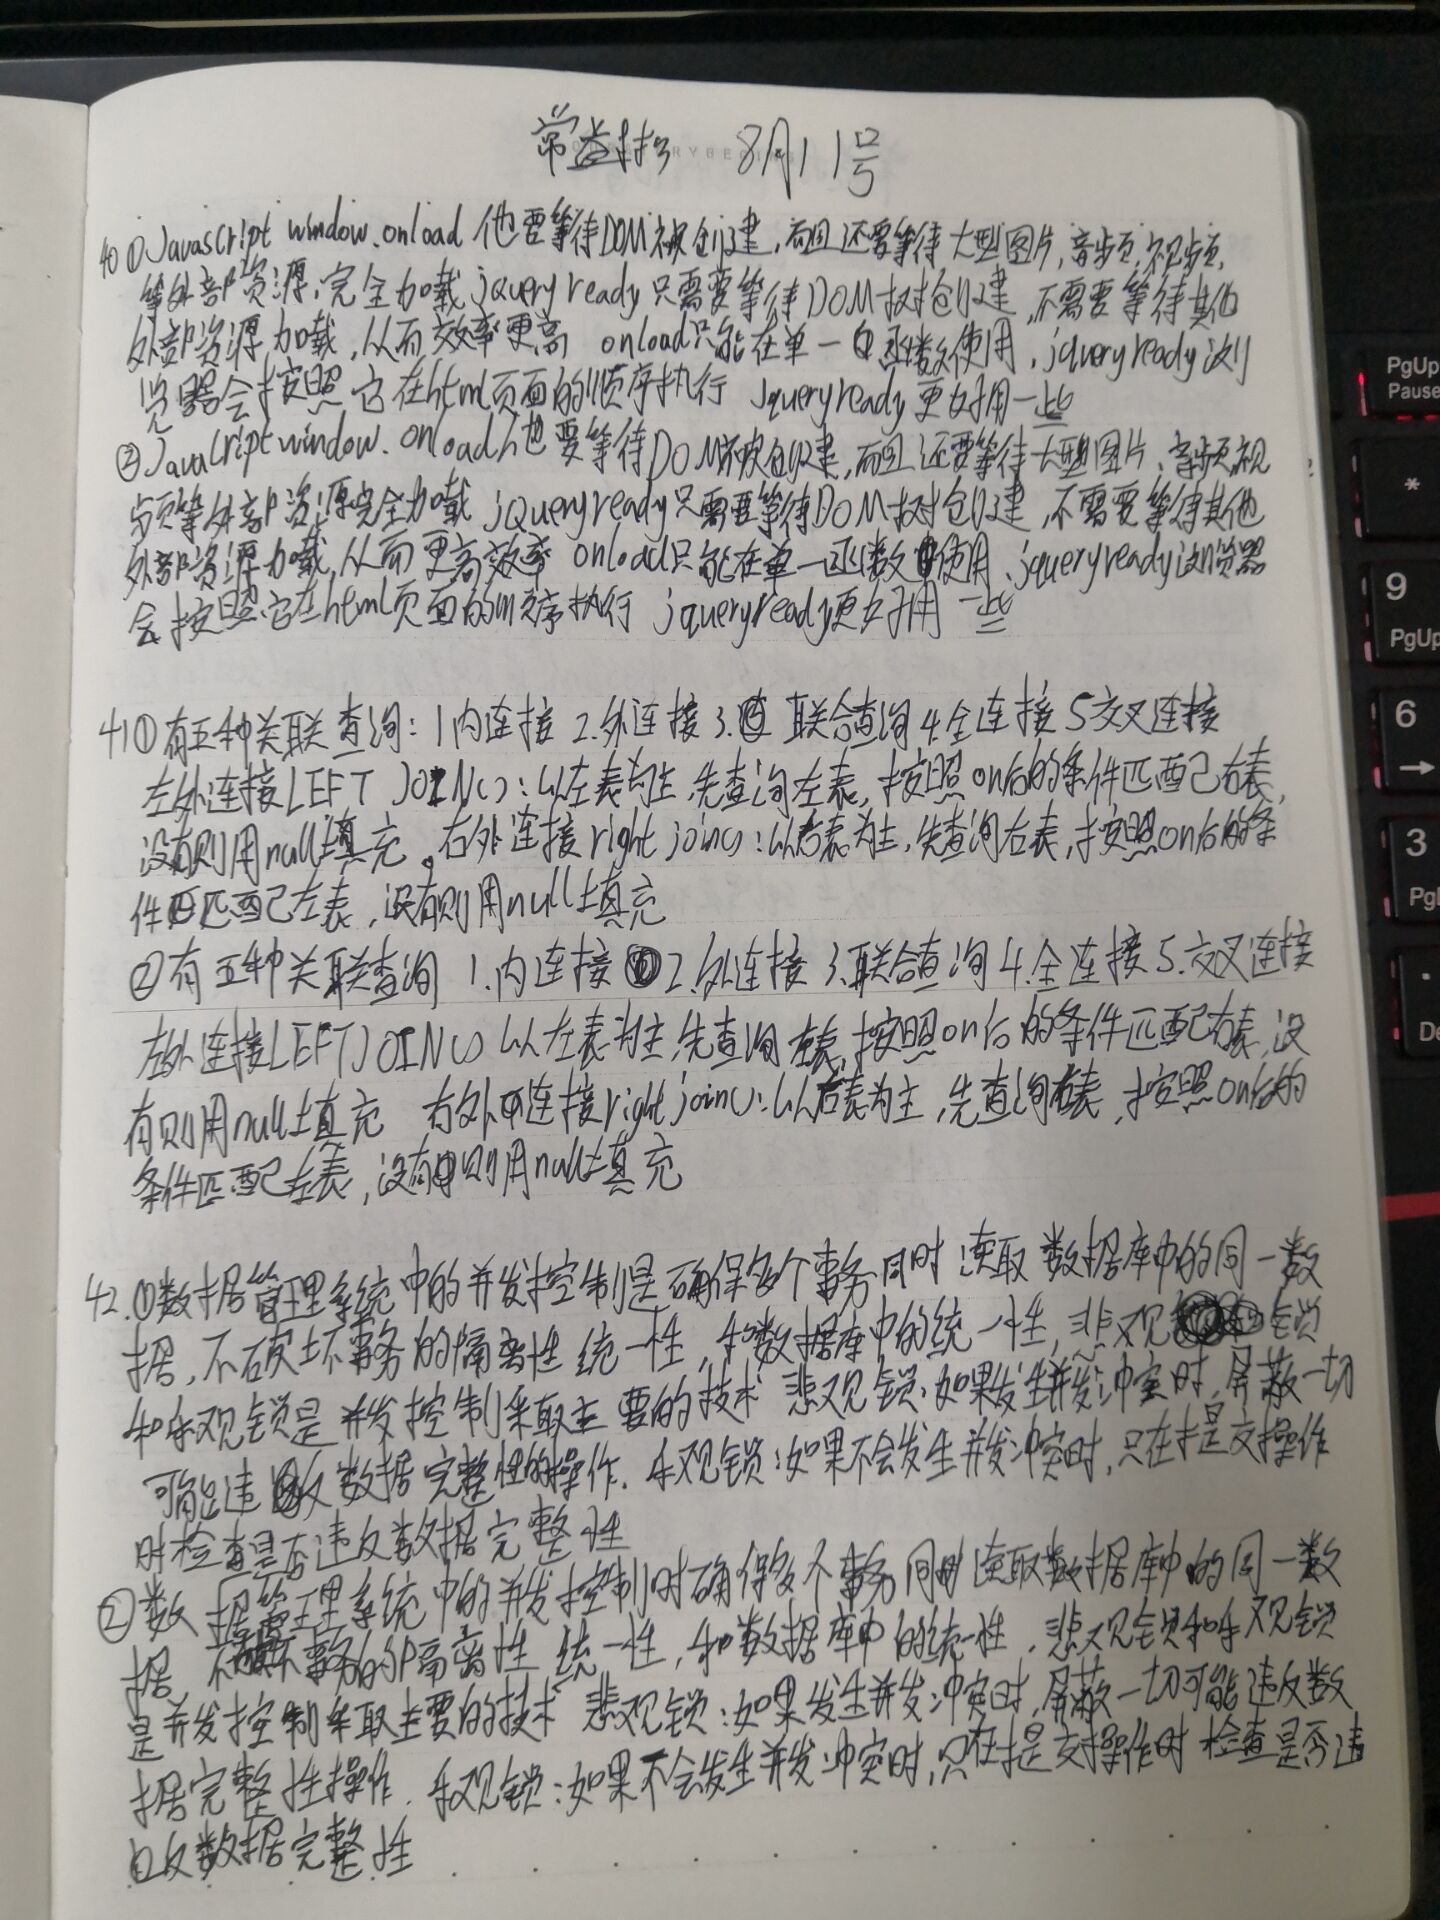 常益 8月11号
40 ①Javascript window.onload 他要等待DOM被创建,而且还要等待大型图片,音频,视频,
等外部资源,完全加载 jquery ready只需要等待DOM树创建,不需要等待其他
外部资源加载,从而效率更高 onload只能在单一函数使用,jquery ready浏
览器会按照它在html页面的顺序执行 jquery ready更好用一些
②Javascript window.onload他要等待DOM被创建,而且还要等待大型图片,音频视
频等外部资源完全加载 jQuery ready只需要等待DOM树创建,不需要等待其他
外部资源加载,从而更高效率 onload只能在单一函数使用,jquery ready浏览器
会按照它在html页面的顺序执行 jquery ready更好用一些
41①有五种关联查询:1内连接 2.外连接 3.联合查询 4.全连接 5交叉连接
左外连接LEFT JOIN():以左表为主,先查询左表,按照on后的条件匹配右表,
没有则用null填充。右外连接right join():以右表为主,先查询右表,按照on后的条
件匹配左表,没有则用null填充
②有五种关联查询 1.内连接 2.外连接 3.联合查询 4.全连接 5.交叉连接
左外连接LEFTJOIN()以左表为主,先查询左表,按照on后的条件匹配右表,没
有则用null填充 右外连接right join():以右表为主,先查询右表,按照on后的
条件匹配左表,没有则用null填充
42.①数据管理系统中的并发控制是确保多个事务同时读取数据库中的同一数
据,不破坏事务的隔离性统一性,和数据库中的统一性,悲观锁
和乐观锁是并发控制采取主要的技术 悲观锁:如果发生并发冲突时,屏蔽一切
可能违反数据完整性的操作.乐观锁:如果不会发生并发冲突时,只在提交操作
时检查是否违反数据完整性
②数据管理系统中的并发控制时确保多个事务同时读取数据库中的同一数
据,不破坏事务的隔离性统一性,和数据库中的统一性,悲观锁和乐观锁
是并发控制采取主要的技术 悲观锁:如果发生并发冲突时,屏蔽一切可能违反数
据完整性操作.乐观锁:如果不会发生并发冲突时,只在提交操作时检查是否违
反数据完整性